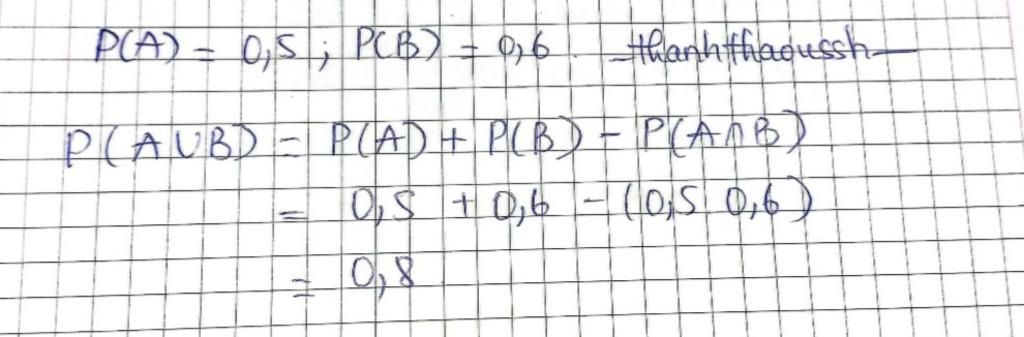 P(A) = 0,5 ; P(B) = 0,6. thanhthaoussh
P(A∪B) = P(A) + P(B) - P(A∩B)
= 0,5 + 0,6 - (0,5. 0,6)
= 0,8